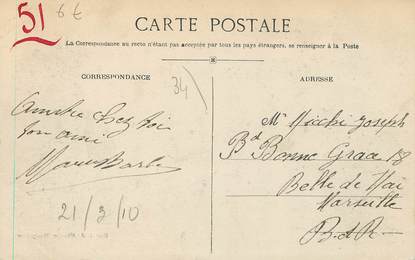 51 6 €
CARTE POSTALE
La Correspondance au recto n'étant pas acceptée par tous les pays étrangers, se renseigner à la Poste
CORRESPONDANCE
34
ton ami
21/3/10
ADRESSE
Mr Joseph
Bd Bonne Grace 18
Belle de Mai
Marseille
B-d-R-